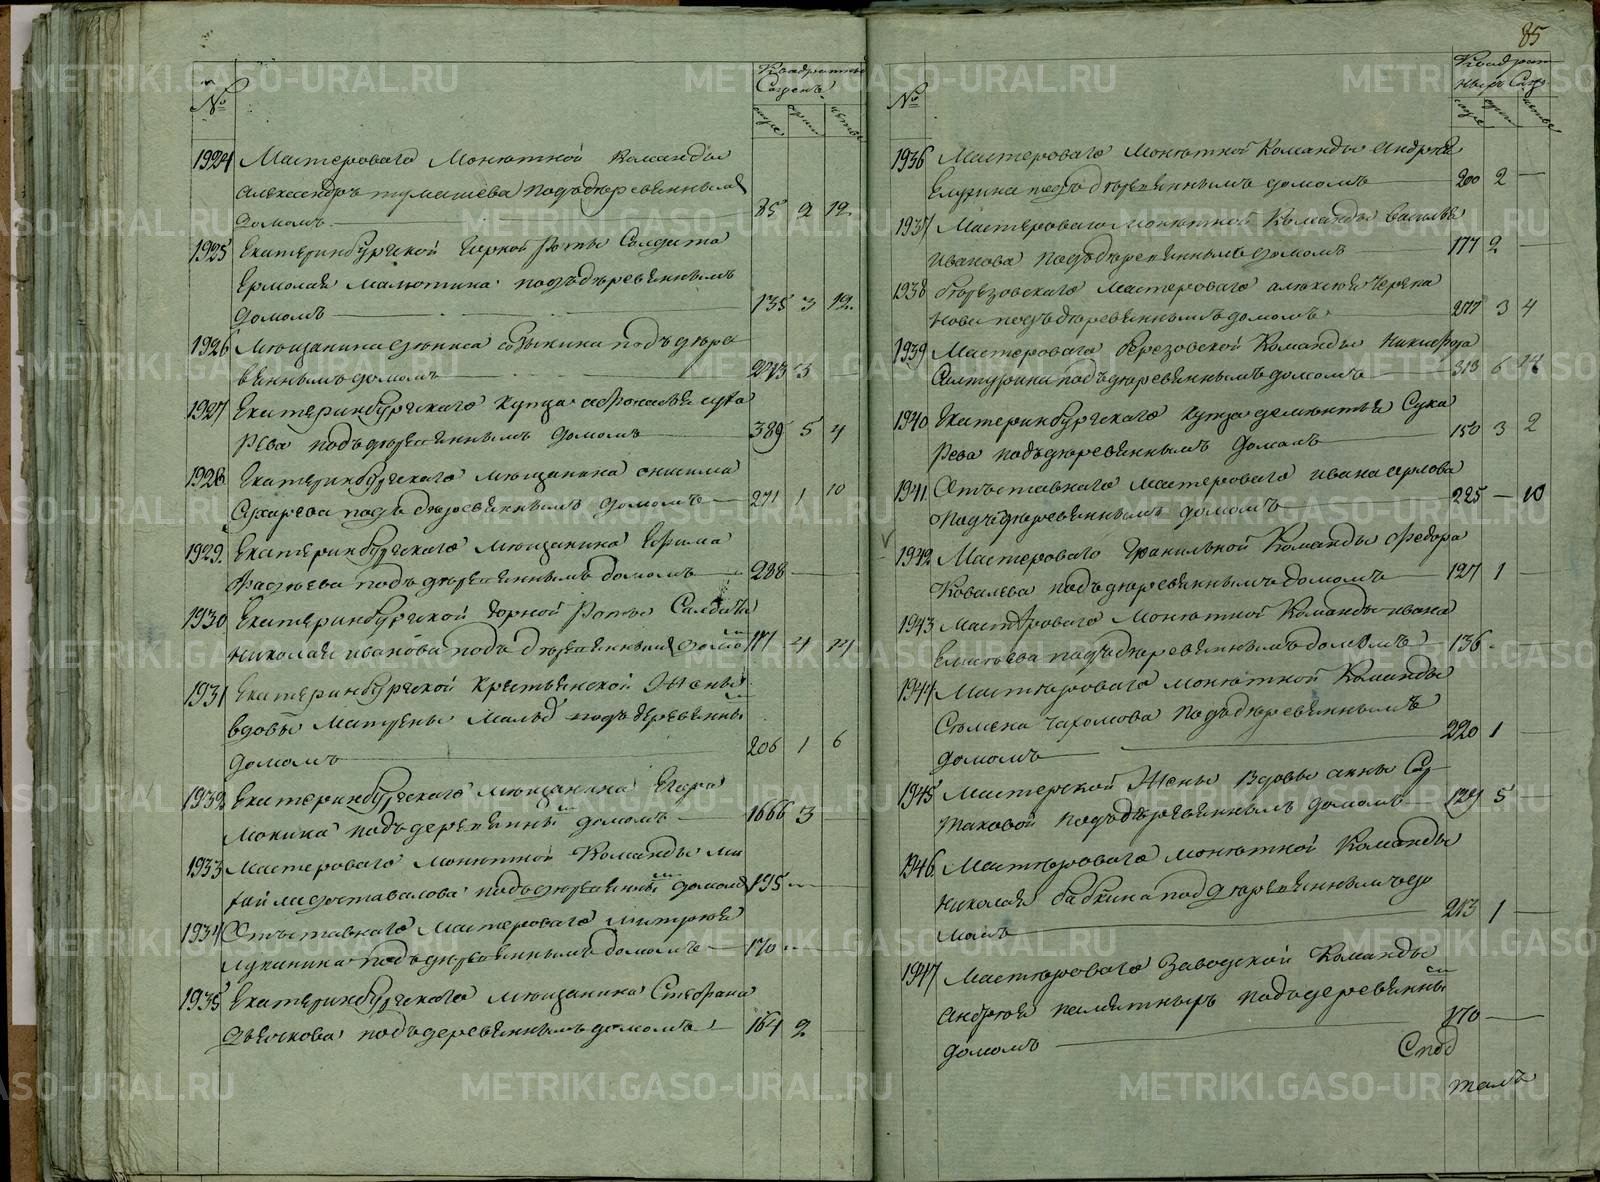 №
Квадратныхъ
Сажень
саже арши четве
1924 Мастероваго Монетной Команды
Александръ Тумашева подъ деревяннымъ
домомъ 85 2 12
1925 Екатеринбургской Горной Роты Солдата
Ермолая Малютина подъ деревяннымъ
домомъ 135 3 12
1926 Мещанина Дениса подъ дере
вяннымъ домомъ 2273 3
1927 Екатеринбургскаго купца Афонасья Суха
рева подъ деревяннымъ домомъ 389 5 4
1928 Екатеринбургскаго мещанина Онисима
Сухарева подъ деревяннымъ домомъ 271 1 10
1929 Екатеринбургскаго мещанина Ефима
Фадеева подъ деревяннымъ домомъ 288
1930 Екатеринбургской Горной Роты Солдата
Николая Иванова подъ деревяннымъ домомъ 171 4 14
1931 Екатеринбургской Крестьянской Жены
вдовы Матрены подъ деревяннымъ
домомъ 206 1 6
1932 Екатеринбургскаго мещанина Егора
Мокина подъ деревяннымъ домомъ 1666 3
1933 Мастероваго Монетной Команды Ми
хайла подъ деревяннымъ домомъ 195
1934 Отъставнаго Мастероваго Митрофея
Луканина подъ деревяннымъ домомъ 170
1935 Екатеринбургскаго мещанина Стефана
подъ деревяннымъ домомъ 164 2
85
№
Квадрат
ныхъ Саж
саже арши четве
1936 Мастероваго Монетной Команды Андрея
Елугина подъ деревяннымъ домомъ 200 2
1937 Мастероваго Монетной Команды Василья
Иванова подъ деревяннымъ домомъ 177 2
1938 Березовскаго Мастероваго Алексея Черепа
нова подъ деревяннымъ домомъ 277 3 4
1939 Мастероваго Березовской Команды Никифора
подъ деревяннымъ домомъ 313 6 14
1940 Екатеринбургскаго купца Дементья Суха
рева подъ деревяннымъ домомъ 150 3 2
1941 Отъставнаго Мастероваго Ивана Орлова
подъ деревяннымъ домомъ 225 — 10
1942 Мастероваго Гранильной Команды Федора
Ковалева подъ деревяннымъ домомъ 127 1
1943 Мастероваго Монетной Команды Ивана
подъ деревяннымъ домомъ 136
1944 Мастероваго Монетной Команды
Семена Пахомова подъ деревяннымъ
домомъ 220 1
1945 Мастерской Жены вдовы Анны Суд
таковой подъ деревяннымъ домомъ 129 5
1946 Мастероваго Монетной Команды
Николая Бабкина подъ деревяннымъ до
момъ 213 1
1947 Мастероваго Заводской Команды
Андрея подъ деревяннымъ
домомъ 170
Спод
талъ
METRIKI.GASO-URAL.RU